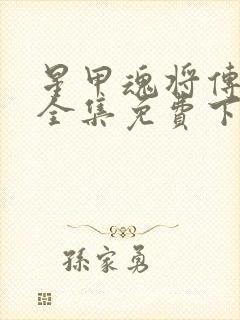 星甲魂将傳
全集免費下
孫家勇